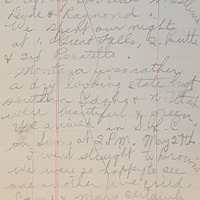 Clyde & Raymond.
We spent one night
at 1. Great Falls, 2. Butte
& 3rd Pocatello.
Montana was rather
a dry looking state but
southern Idaho & N. Utah
were beautiful & green.
We arrived in S.L.C.
on Sun. at 2 P.M. May 27th
I went straight to
we were so happy to see
one another we cried